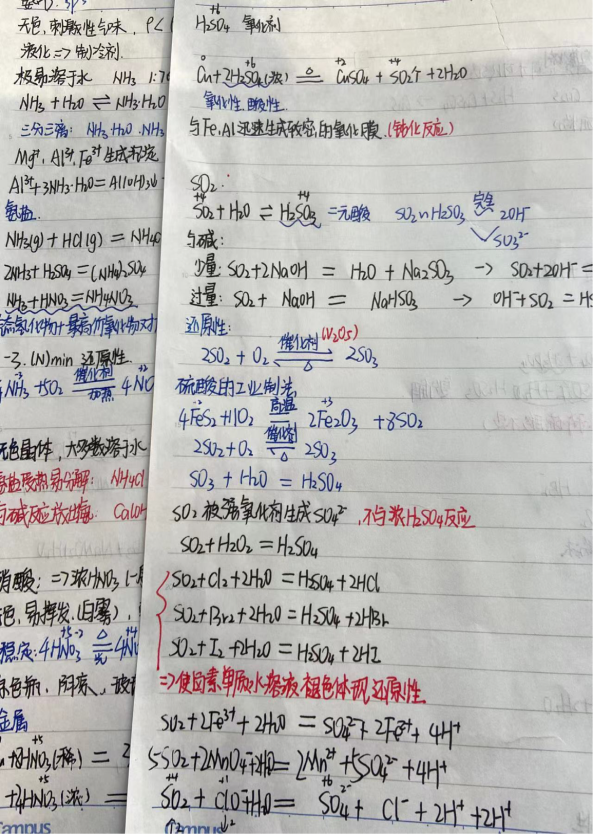 无色,刺激性气味. ρ<
液化=>制冷剂.
极易溶于水 NH₃ 1:70
NH₃ + H₂O ⇌ NH₃·H₂O
三分三离: NH₃ H₂O .NH₃
Mg²⁺, Al³⁺, Fe³⁺ 生成沉淀
Al³⁺+3NH₃·H₂O=Al(OH)₃↓
氨盐.
NH₃(g) + HCl(g) = NH₄Cl
2NH₃+H₂SO₄=(NH₄)₂SO₄
NH₃+HNO₃=NH₄NO₃
-3. (N)min 还原性.
NH₃ +5O₂ 催化剂 加热 4NO
无色晶体, 大多数溶于水
受热易分解: NH₄Cl
与碱反应放出氨: Ca(OH
硝酸: =>浓HNO₃ (-
色, 易挥发.(白雾),
稳定: 4HNO₃ △ 光 4N
金属
+8HNO₃(稀) = 2
+4HNO₃(浓) =
Campus
+6
H₂SO₄ 氧化剂
0 +6 +2 +4
Cu+2H₂SO₄(浓) △ CuSO₄ + SO₂↑ +2H₂O
氧化性.酸性.
与Fe,Al迅速生成致密的氧化膜.(钝化反应)
SO₂.
+4 +4
SO₂ + H₂O ⇌ H₂SO₃ 二元酸 SO₂ n H₂SO₃ 完全 2OH⁻
SO₃²⁻
与碱:
少量: SO₂+2NaOH = H₂O + Na₂SO₃ → SO₂+2OH⁻=
过量: SO₂ + NaOH = NaHSO₃ → OH⁻+SO₂ = HS
还原性:
2SO₂ + O₂ 催化剂(V₂O₅) △ 2SO₃
硫酸的工业制法
4FeS₂+11O₂ 高温 2Fe₂O₃ +8SO₂
2SO₂+O₂ 催化剂 △ 2SO₃
SO₃ + H₂O = H₂SO₄
SO₂ 被强氧化剂生成SO₄²⁻, 不与浓H₂SO₄反应
SO₂+H₂O₂=H₂SO₄
SO₂+Cl₂+2H₂O=H₂SO₄+2HCl
SO₂+Br₂+2H₂O=H₂SO₄+2HBr
SO₂+I₂+2H₂O=H₂SO₄+2HI
=>使卤素单质水溶液褪色体现还原性
SO₂+2Fe³⁺+2H₂O=SO₄²⁻+2Fe²⁺+4H⁺
5SO₂+2MnO₄⁻+2H₂O=2Mn²⁺+5SO₄²⁻+4H⁺
SO₂+ClO⁻+H₂O=SO₄²⁻+Cl⁻+2H⁺+2H⁺
Campus